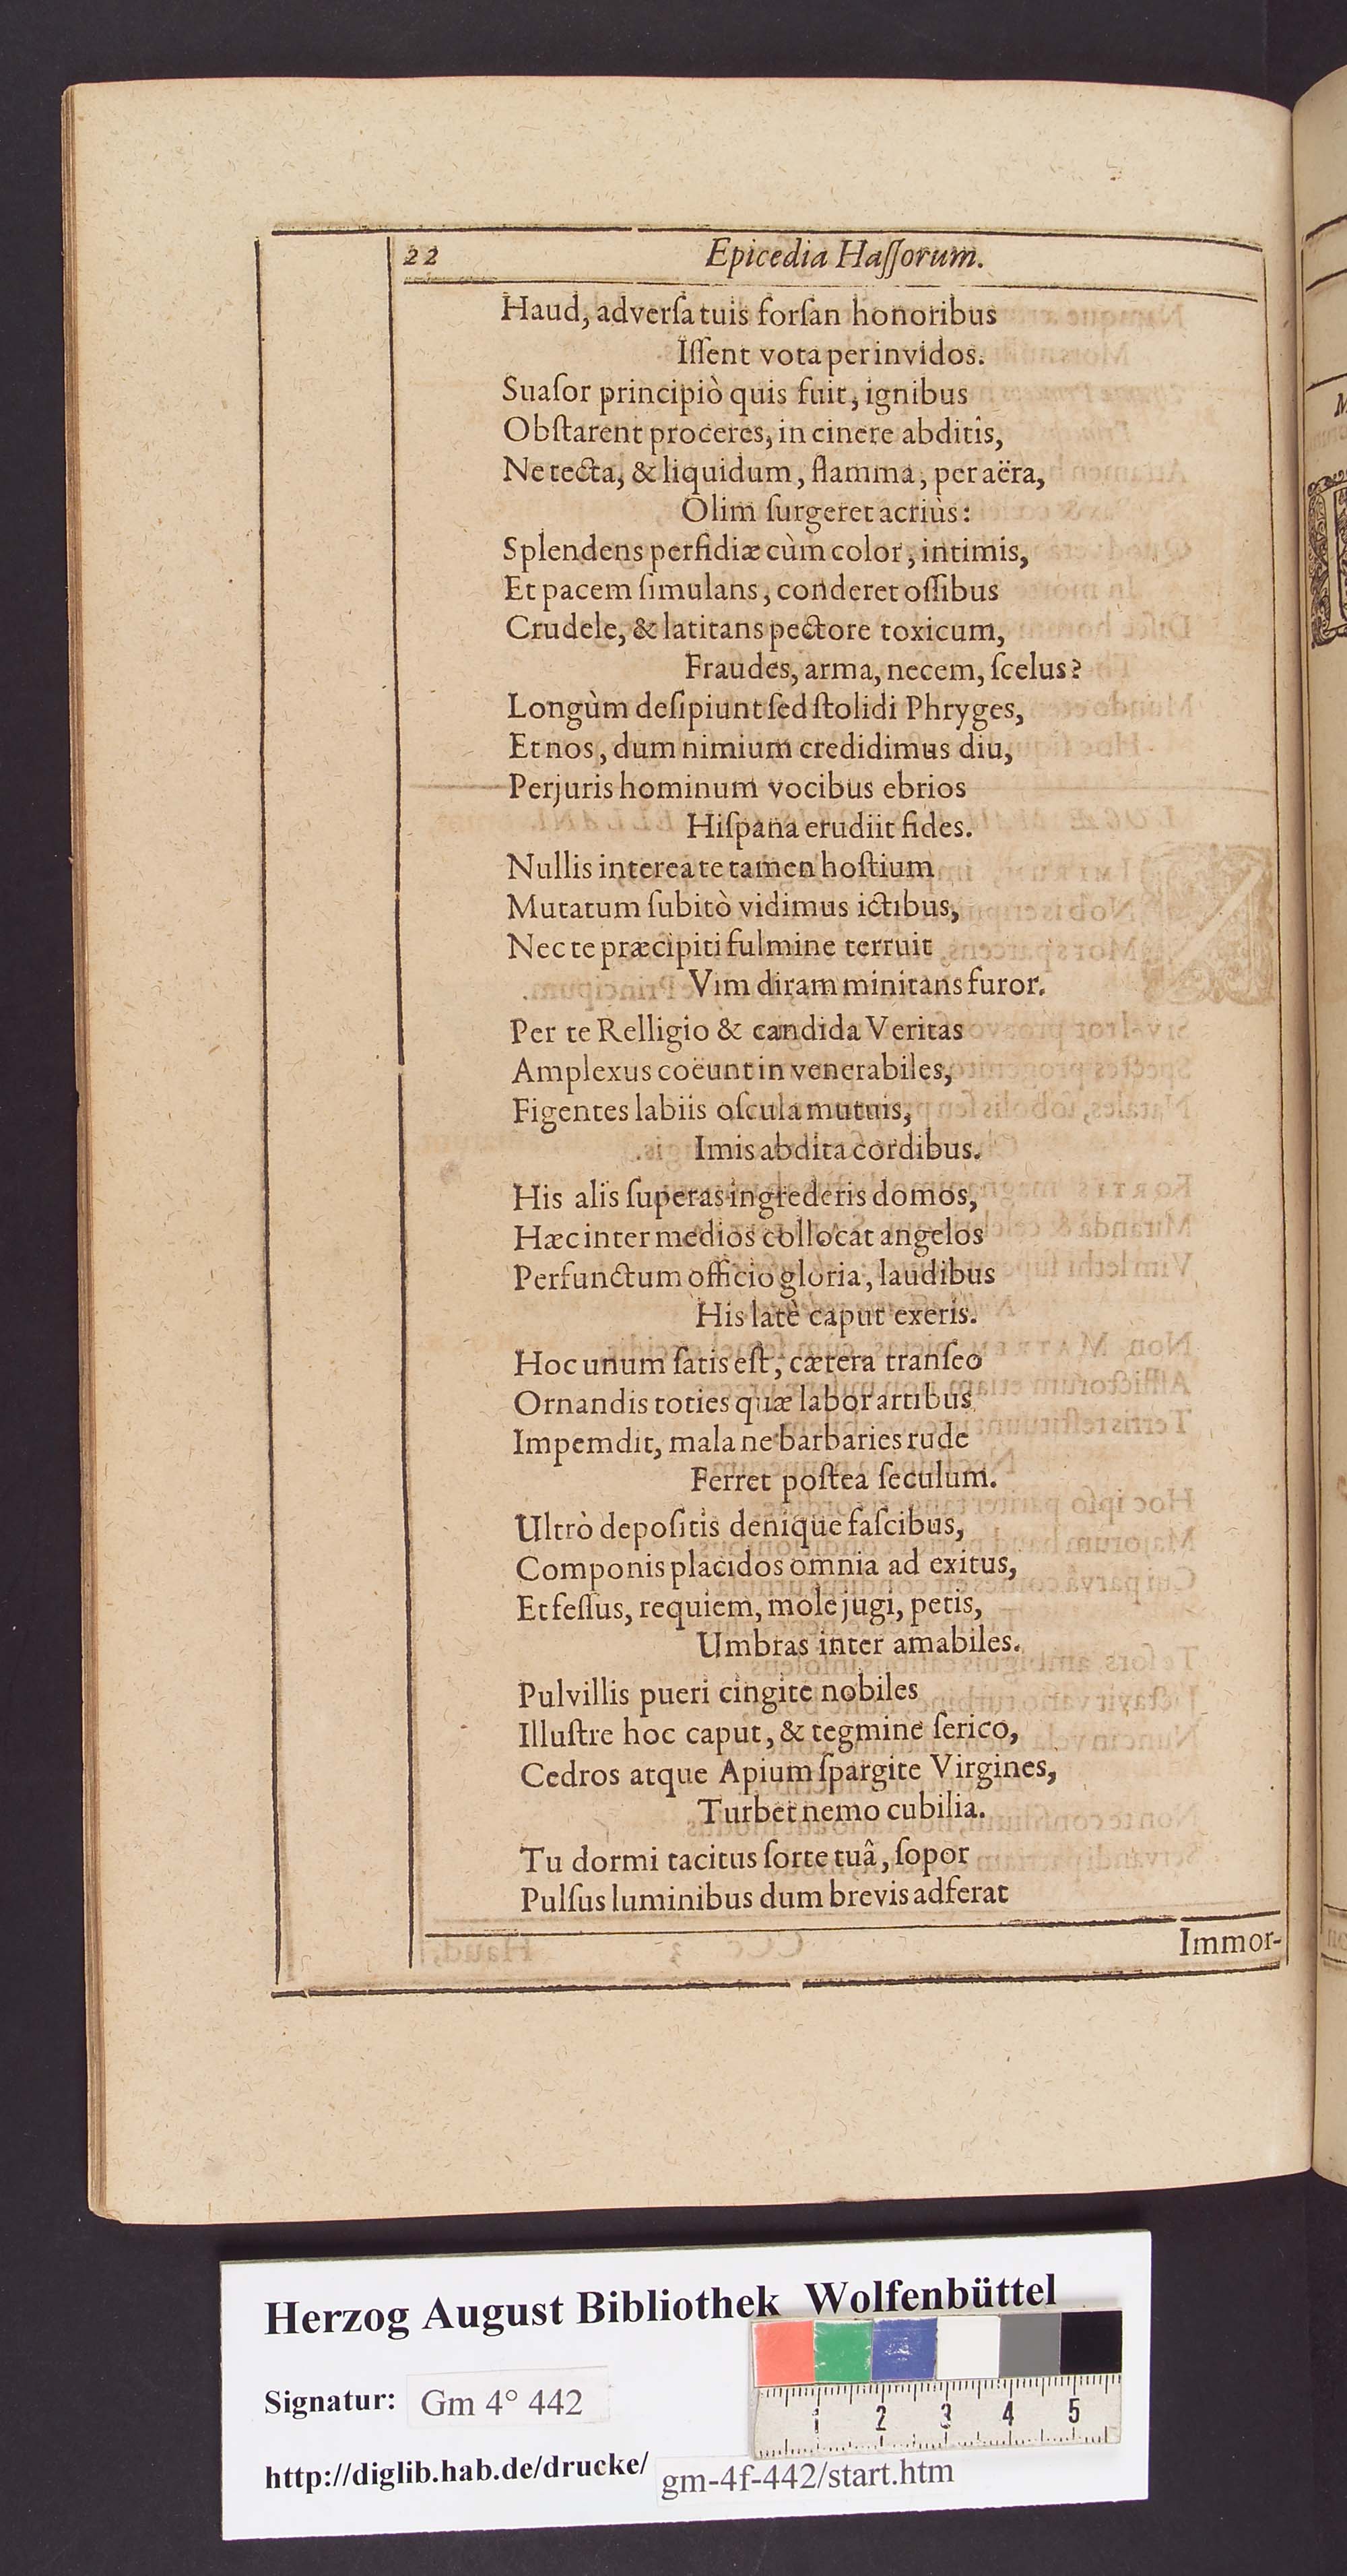 22 Epicedia Haſſorum.
Haud, adverſa tuis forſan honoribus
Iſſent vota per invidos.
Suaſor principiò quis fuit, ignibus
Obſtarent proceres, in cinere abditîs,
Ne tecta, & liquidum, flamma, per aëra,
Olim ſurgeret acriùs:
Splendens perfidiæ cùm color, intimis,
Et pacem ſimulans, conderet oſſibus
Crudele, & latitans pectore toxicum,
Fraudes, arma, necem, ſcelus?
Longùm deſipiunt ſed ſtolidi Phryges,
Et nos, dum nimium credidimus diu,
Perjuris hominum vocibus ebrios
Hiſpana erudiit fides.
Nullis interea te tamen hoſtium
Mutatum ſubitò vidimus ictibus,
Nec te præcipiti fulmine terruit
Vim diram minitans furor.
Per te Relligio & candida Veritas
Amplexus coëunt in venerabiles,
Figentes labiis oſcula mutuis,
Imis abdita cordibus.
His alis ſuperas ingrederis domos,
Hæc inter medios collocat angelos
Perfunctum officio gloria, laudibus
His latè caput exeris.
Hoc unum ſatis eſt, cætera tranſeo
Ornandis toties quæ labor artibus
Impemdit, mala ne barbaries rude
Ferret poſtea ſeculum.
Ultrò depoſitis denique faſcibus,
Componis placidos omnia ad exitus,
Et feſſus, requiem, mole jugi, petis,
Umbras inter amabiles.
Pulvillis pueri cingite nobiles
Illuſtre hoc caput, & tegmine ſerico,
Cedros atque Apium ſpargite Virgines,
Turbet nemo cubilia.
Tu dormi tacitus ſorte tuâ, ſopor
Pulſus luminibus dum brevis adferat
Immor-
Herzog August Bibliothek Wolfenbüttel
Signatur: Gm 4° 442
1 2 3 4 5
http://diglib.hab.de/drucke/ gm-4f-442/start.htm